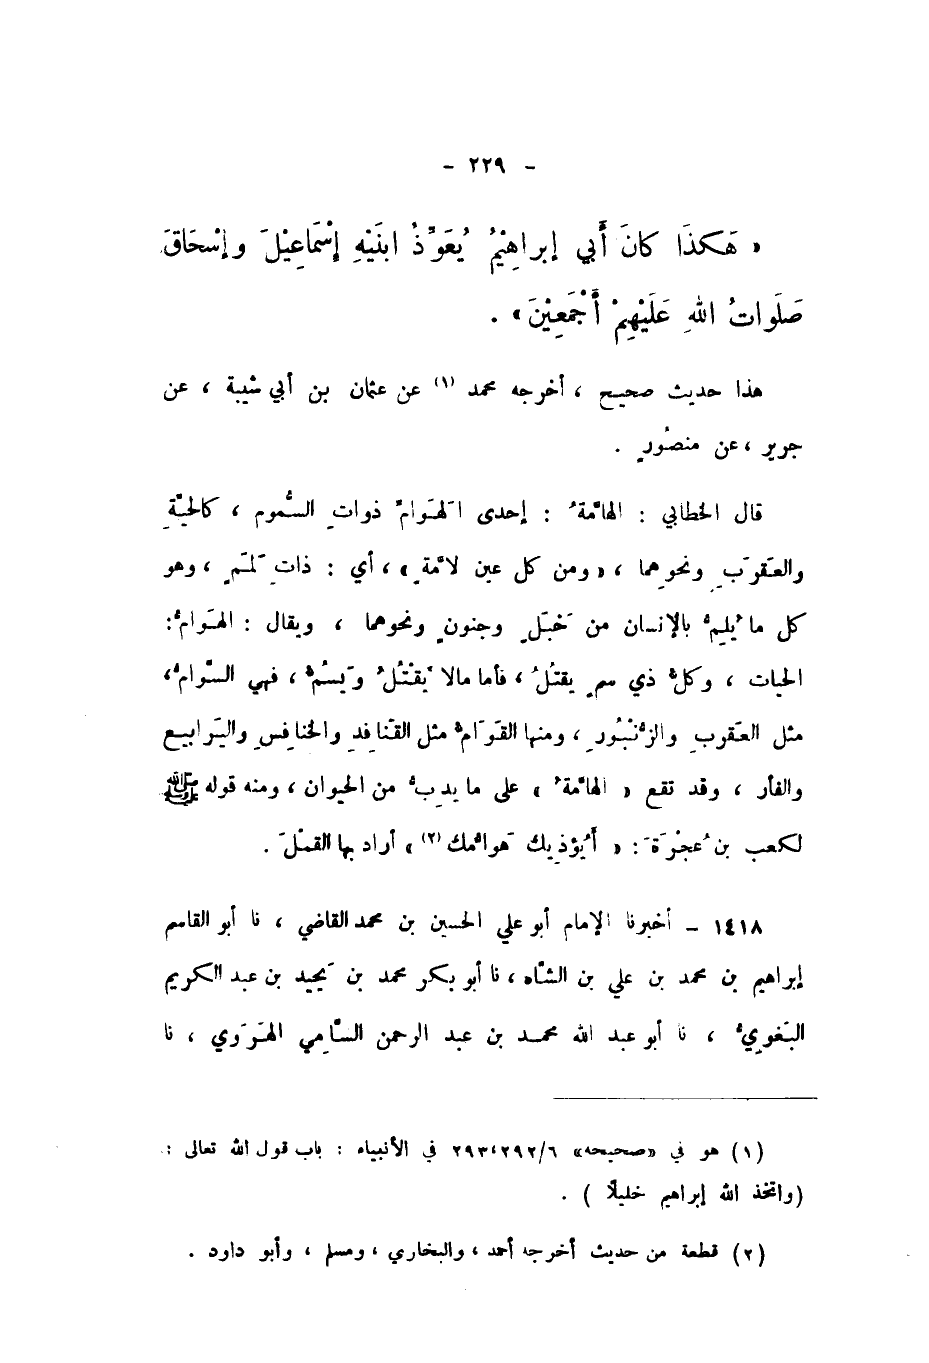 - ٢٢٩ -
« هَكذَا كانَ أَبي إبراهِيْمُ يُعَوِّذُ ابنَيْهِ إسْمَاعِيْلَ وإسْحَاقَ
صَلَواتُ اللهِ عَلَيْهِمْ أَجْمَعِيْنَ » .
هذا حديث صحيح ، أخرجه محمد (١) عن عثمان بن أبي شيبة ، عن
جرير ، عن منصُورٍ .
قال الخطابي : الهامَّةُ : إحدى الهَوامِّ ذواتِ السُّموم ، كالحيَّةِ
والعَقرَبِ ونحوِهما ، « ومن كل عين لامَّةٍ » ، أي : ذاتِ لَمَمٍ ، وهو
كل ما يُلِمُّ بالإنسان من خَبَلٍ وجنونٍ ونحوهما ، ويقال : الهَوامُّ :
الحيات ، وكلُّ ذي سمٍ يقتُلُ ، فأما مالا يَقْتُلُ وَيَسُمُّ ، فهي السَّوامُّ ،
مثل العَقربِ والزُّنْبُورِ ، ومنها القَوَامُّ مثل القَنافِدِ والخنافِسِ واليَرابيع
والفأر ، وقد تقع « الهامَّةُ » على ما يدِبُّ من الحيوان ، ومنه قوله ﷺ
لكعب بن عُجْرَةَ : « أَيُؤذيكَ هَوامُّكَ (٢) » أراد بها القَمْلَ .
١٤١٨ - أخبرنا الإمام أبو علي الحسين بن محمد القاضي ، نا أبو القاسم
إبراهيم بن محمد بن علي بن الشَّاه ، نا أبو بكر محمد بن يَجيد بن عبد الكريم
البَغويُّ ، نا أبو عبد الله محمد بن عبد الرحمن السَّامِي الهَرَوي ، نا
(١) هو في «صحيحه» ٦/٢٩٢،٢٩٣ في الأنبياء : باب قول الله تعالى :
(واتخذ الله إبراهيم خليلًا ) .
(٢) قطعة من حديث أخرجه أحمد ، والبخاري ، ومسلم ، وأبو داود .